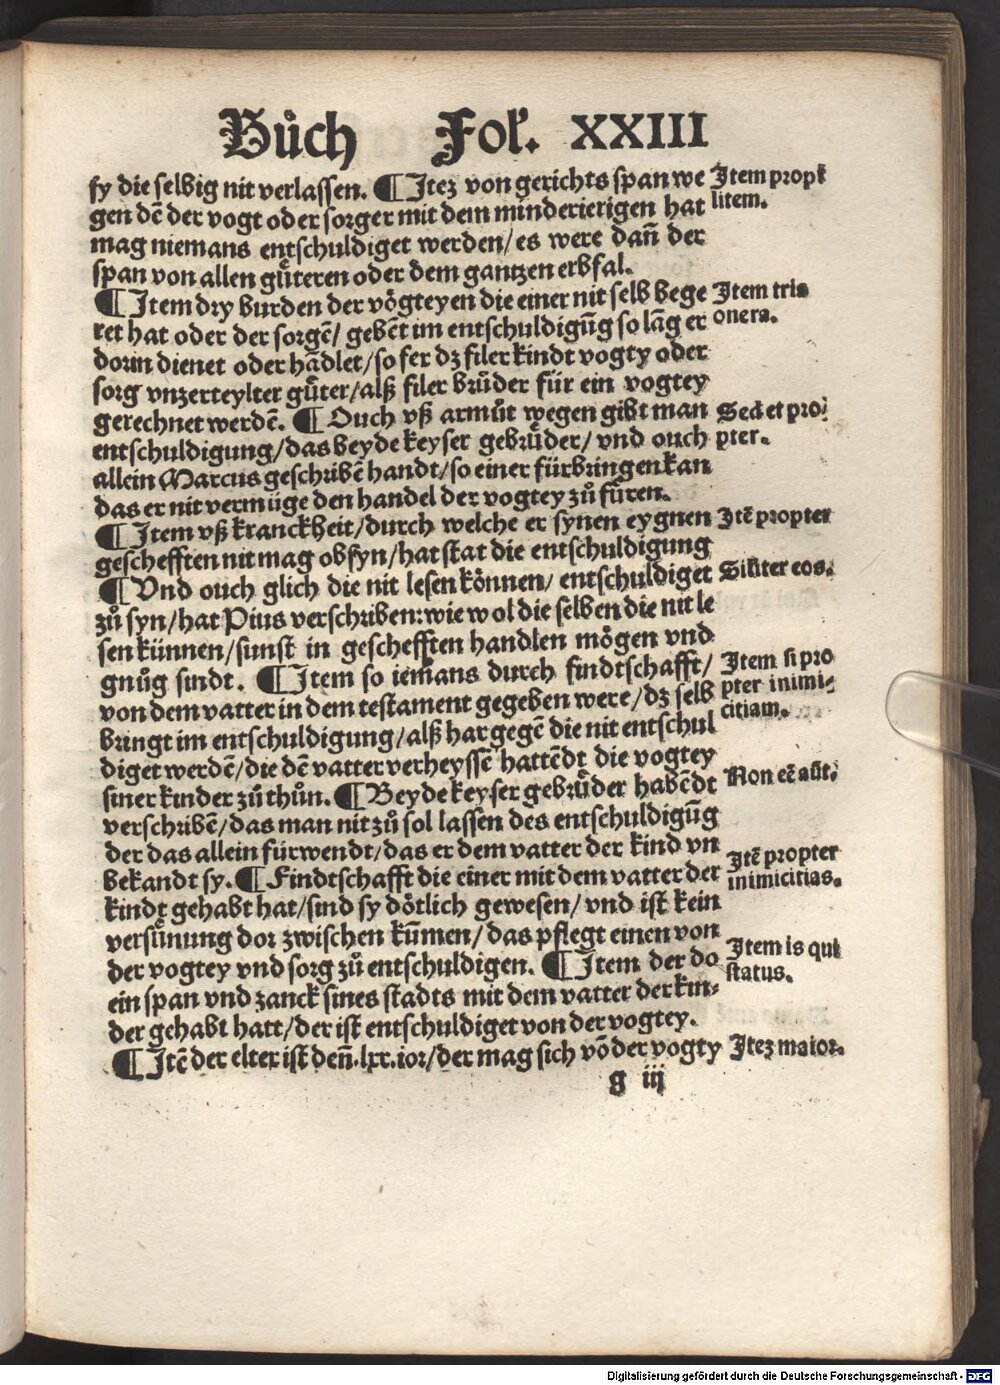 Bůch Fol. XXIII
sy die selbig nit verlassen. ¶ Itez von gerichts span we
gen dē der vogt oder sorger mit dem minderierigen hat
mag niemans entschuldiget werden/ es were dañ der
span von allen gůteren oder dem gantzen erbfal.
¶ Item dry burden der vögteyen die einer nit selb bege
ret hat oder der sorgē/ gebēt im entschuldigūg so lāg er
dorin dienet oder hādlet/ so fer dz filer kindt vogty oder
sorg vnzerteylter gůter/ alß filer brůder für ein vogtey
gerechnet werdē. ¶ Ouch vß armůt wegen gibt man
entschuldigung/ das beyde keyser gebrůder/ vnd ouch
allein Marcus geschribē handt/ so einer fürbringen kan
das er nit vermüge den handel der vogtey zů füren.
¶ Item vß kranckheit/ durch welche er synen eygnen
geschefften nit mag obsyn/ hat stat die entschuldigung
¶ Vnd ouch glich die nit lesen können/ entschuldiget
zů syn/ hat Pius verschriben: wie wol die selben die nit le
sen künnen/ sunst in geschefften handlen mögen vnd
gnůg sindt. ¶ Item so iemans durch findtschafft/
von dem vatter in dem testament gegeben were/ dz selb
bringt im entschuldigung/ alß har gegē die nit entschul
diget werdē/ die dē vatter verheyssē hattēdt die vogtey
siner kinder zů thůn. ¶ Beyde keyser gebrůder habēdt
verschribē/ das man nit zů sol lassen des entschuldigūg
der das allein fürwendt/ das er dem vatter der kind vn
bekandt sy. ¶ Findtschafft die einer mit dem vatter der
kindt gehabt hat/ sind sy dötlich gewesen/ vnd ist kein
versůnung dor zwischen kūmen/ das pflegt einen von
der vogtey vnd sorg zů entschuldigen. ¶ Item der do
ein span vnd zanck sines stadts mit dem vatter der kin-
der gehabt hatt/ der ist entschuldiget von der vogtey.
¶ Itē der elter ist deñ .lxx. ior/ der mag sich vō der vogty
g iij
Item propt
litem.
Item tria
onera.
Sed et pro-
pter.
Itē propter
Silīter eos.
Item si pro
pter inimi-
citiam.
Non eē aūt.
Itē propter
inimicitias.
Item is qui
status.
Itez maior.
Digitalisierung gefördert durch die Deutsche Forschungsgemeinschaft - DFG